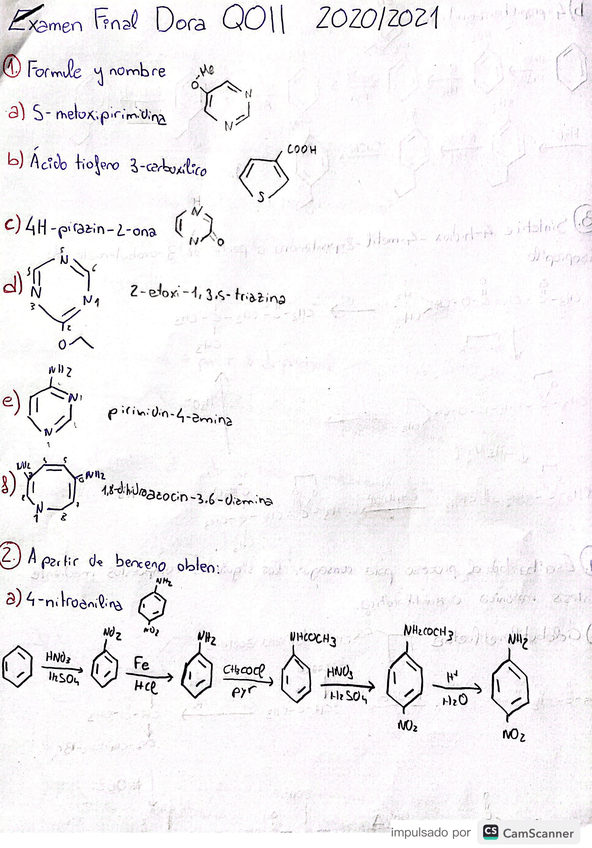 Examen Final Dora QOII 2020/2021
1. Formule y nombre
OMe
N
N
a) 5-metoxipirimidina
b) Ácido tiofeno 3-carboxílico
COOH
S
c) 4H-pirazin-2-ona
H
N
N
O
d)
5
N
N
3
N 1
2
O
2-etoxi-1,3,5-triazina
e)
NH2
N
N
pirimidin-4-amina
f)
NH2
NH2
N
1
8
1,8-dihidroazocin-3,6-diamina
2. A partir de benceno obten:
a) 4-nitroanilina
NH2
NO2
HNO3
H2SO4
NO2
Fe
HCl
NH2
CH3COCl
pyr
NHCOCH3
HNO3
H2SO4
NH2COCH3
NO2
H+
H2O
NH2
NO2
impulsado por CS CamScanner